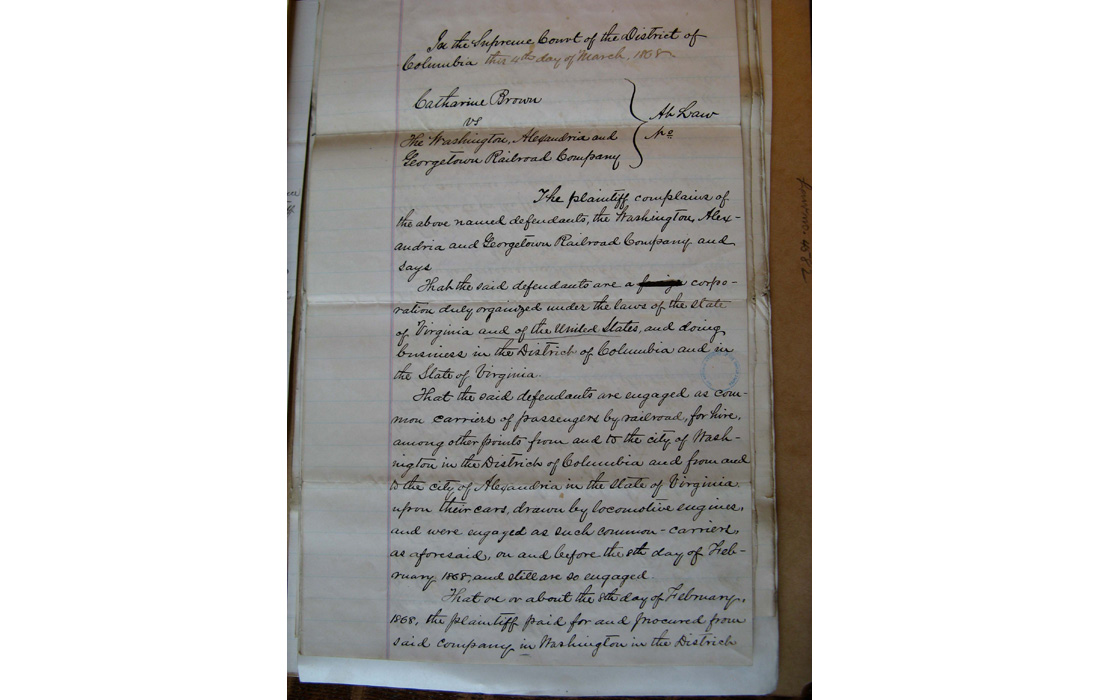 In the Supreme Court of the District of
Columbia this 4th day of March, 1868
Catharine Brown
vs
The Washington, Alexandria and
Georgetown Railroad Company
At Law
No
The plaintiff complains of
the above named defendants, the Washington, Alex-
andria and Georgetown Railroad Company and
says
That the said defendants are a corpo-
ration duly organized under the laws of the state
of Virginia and of the United States, and doing
business in the District of Columbia and in
the State of Virginia.
That the said defendants are engaged as com-
mon carriers of passengers by railroad, for hire,
among other points from and to the city of Wash-
ington in the District of Columbia and from and
to the city of Alexandria in the State of Virginia
upon their cars, drawn by locomotive engines,
and were engaged as such common-carriers,
as aforesaid, on and before the 8th day of Feb-
ruary 1868, and still are so engaged.
That on or about the 8th day of February,
1868, the plaintiff paid for and procured from
said company in Washington in the District